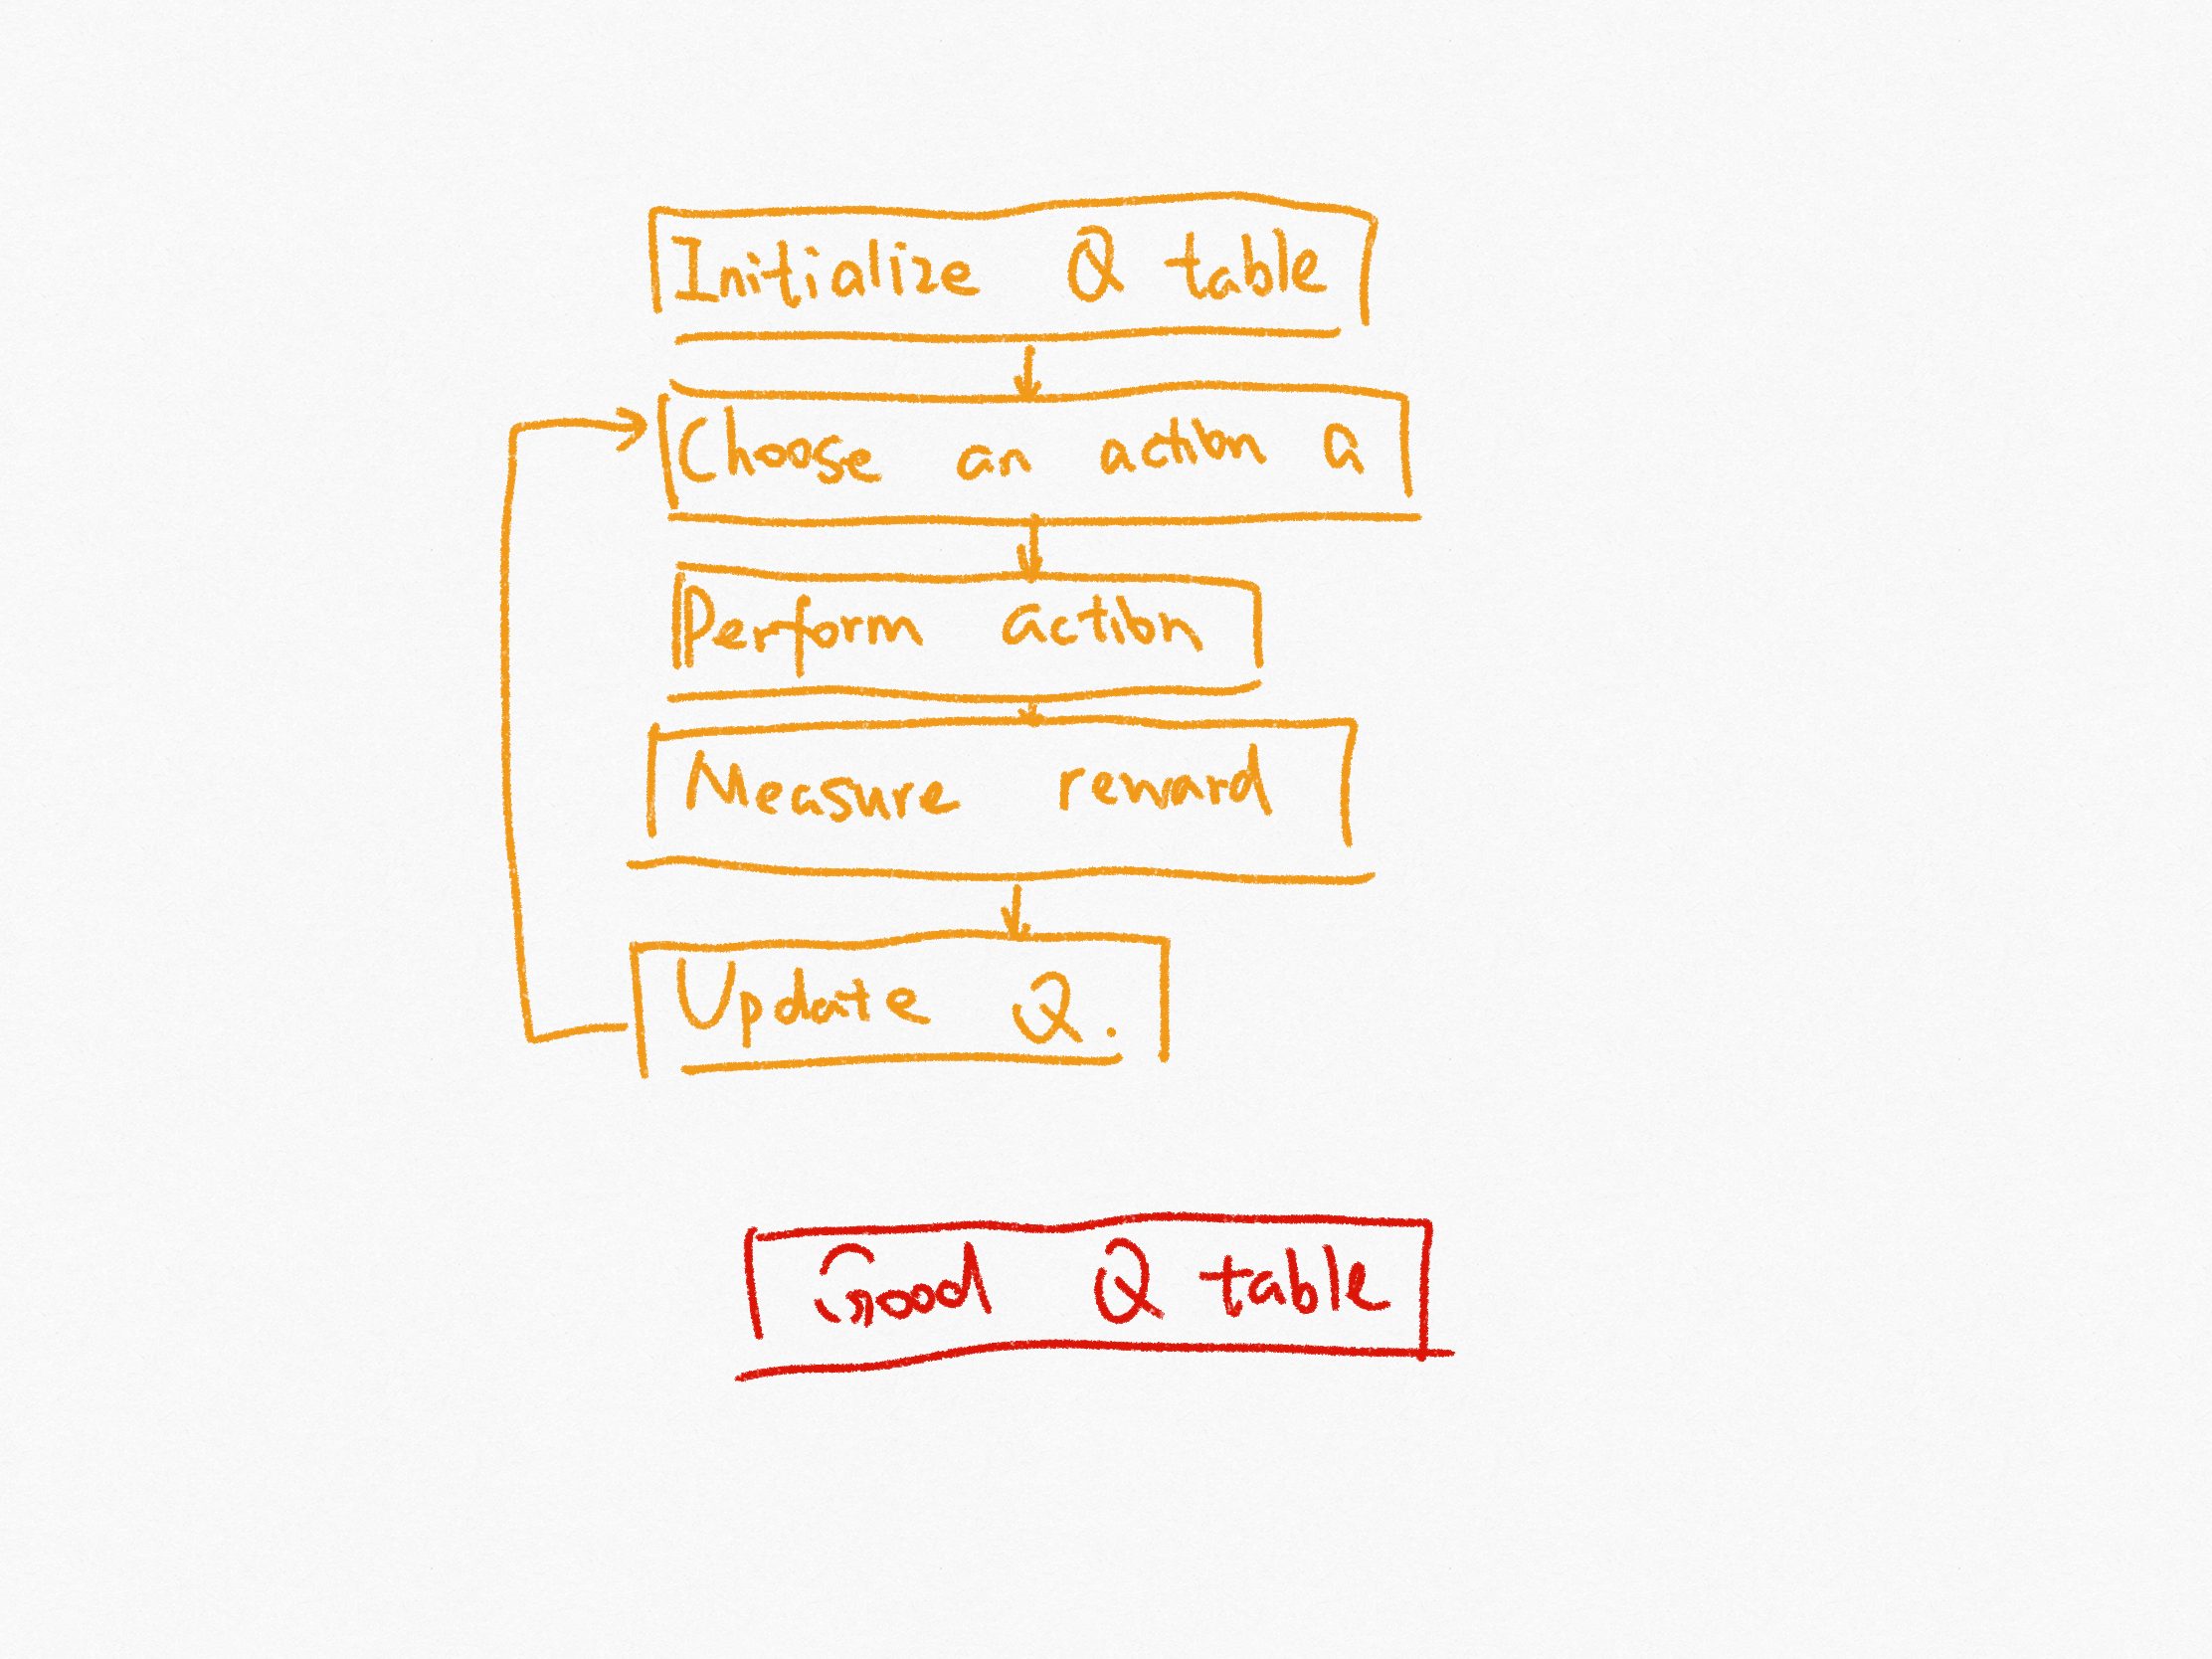 Initialize Q table
Choose an action a
Perform action
Measure reward
Update Q.
Good Q table